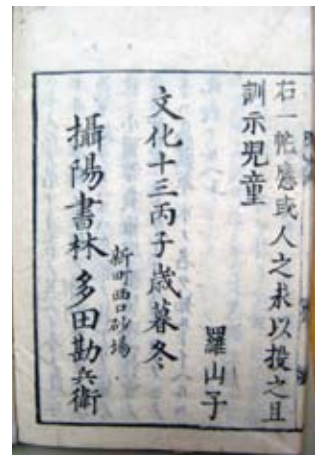 右一帖應或人之求以授之且
訓示児童
羅山子
文化十三丙子歳暮冬
新町西口砂場
攝陽書林 多田勘兵衛